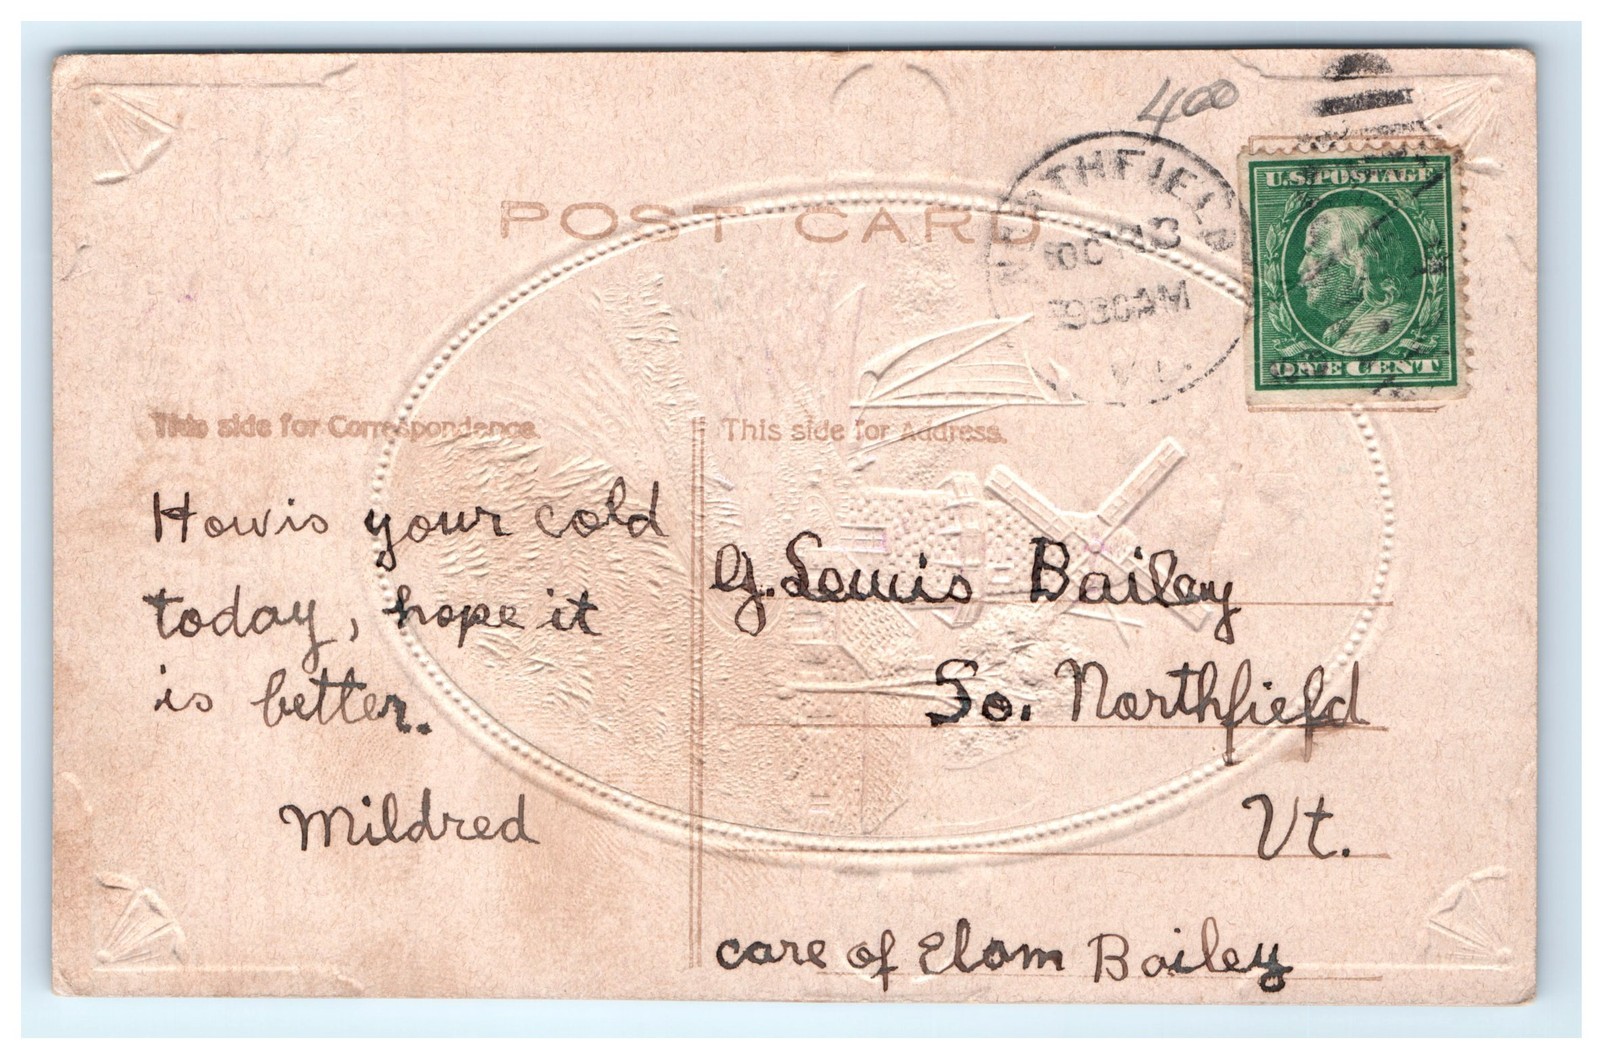 400
POST CARD
NORTHFIELD
930AM
U.S. POSTAGE
ONE CENT
This side for Correspondence.
This side for Address.
How is your cold
today, hope it
is better.
Mildred
G. Lewis Bailey
So. Northfield
Vt.
care of Elam Bailey